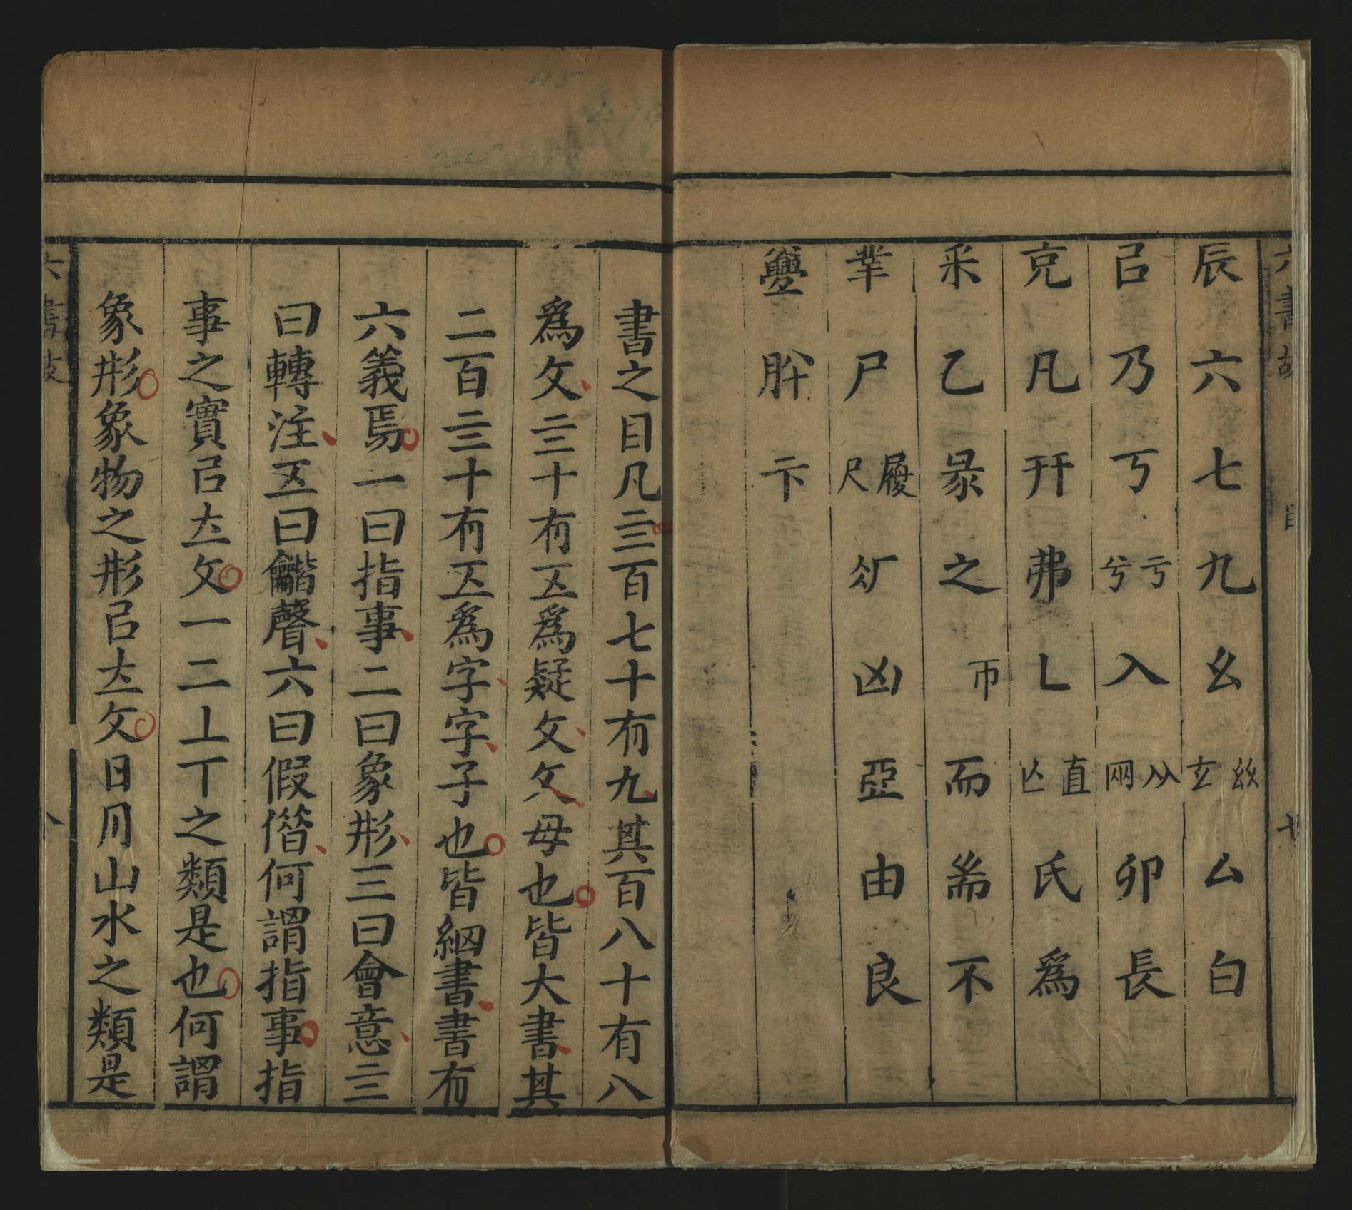 六書故 目 七
辰六七九幺玆玄厶白
㠯乃丂亏兮入从㒳卯長
克凡幵弗乚直亾氏為
釆乙彔之帀而耑不
丵尸履尺凶亞由良
卞
書之目凡亖百七十有九其百八十有八
為文亖十有五為疑文文母也皆大書其
二百亖十有五為字字子也皆絪書書有
六義焉一曰指事二曰象形三曰會意亖
曰轉注五曰龤聲六曰假偕何謂指事指
事之實㠯立文一二丄丅之類是也何謂
象形象物之形㠯立文日月山水之類是
六書故 八